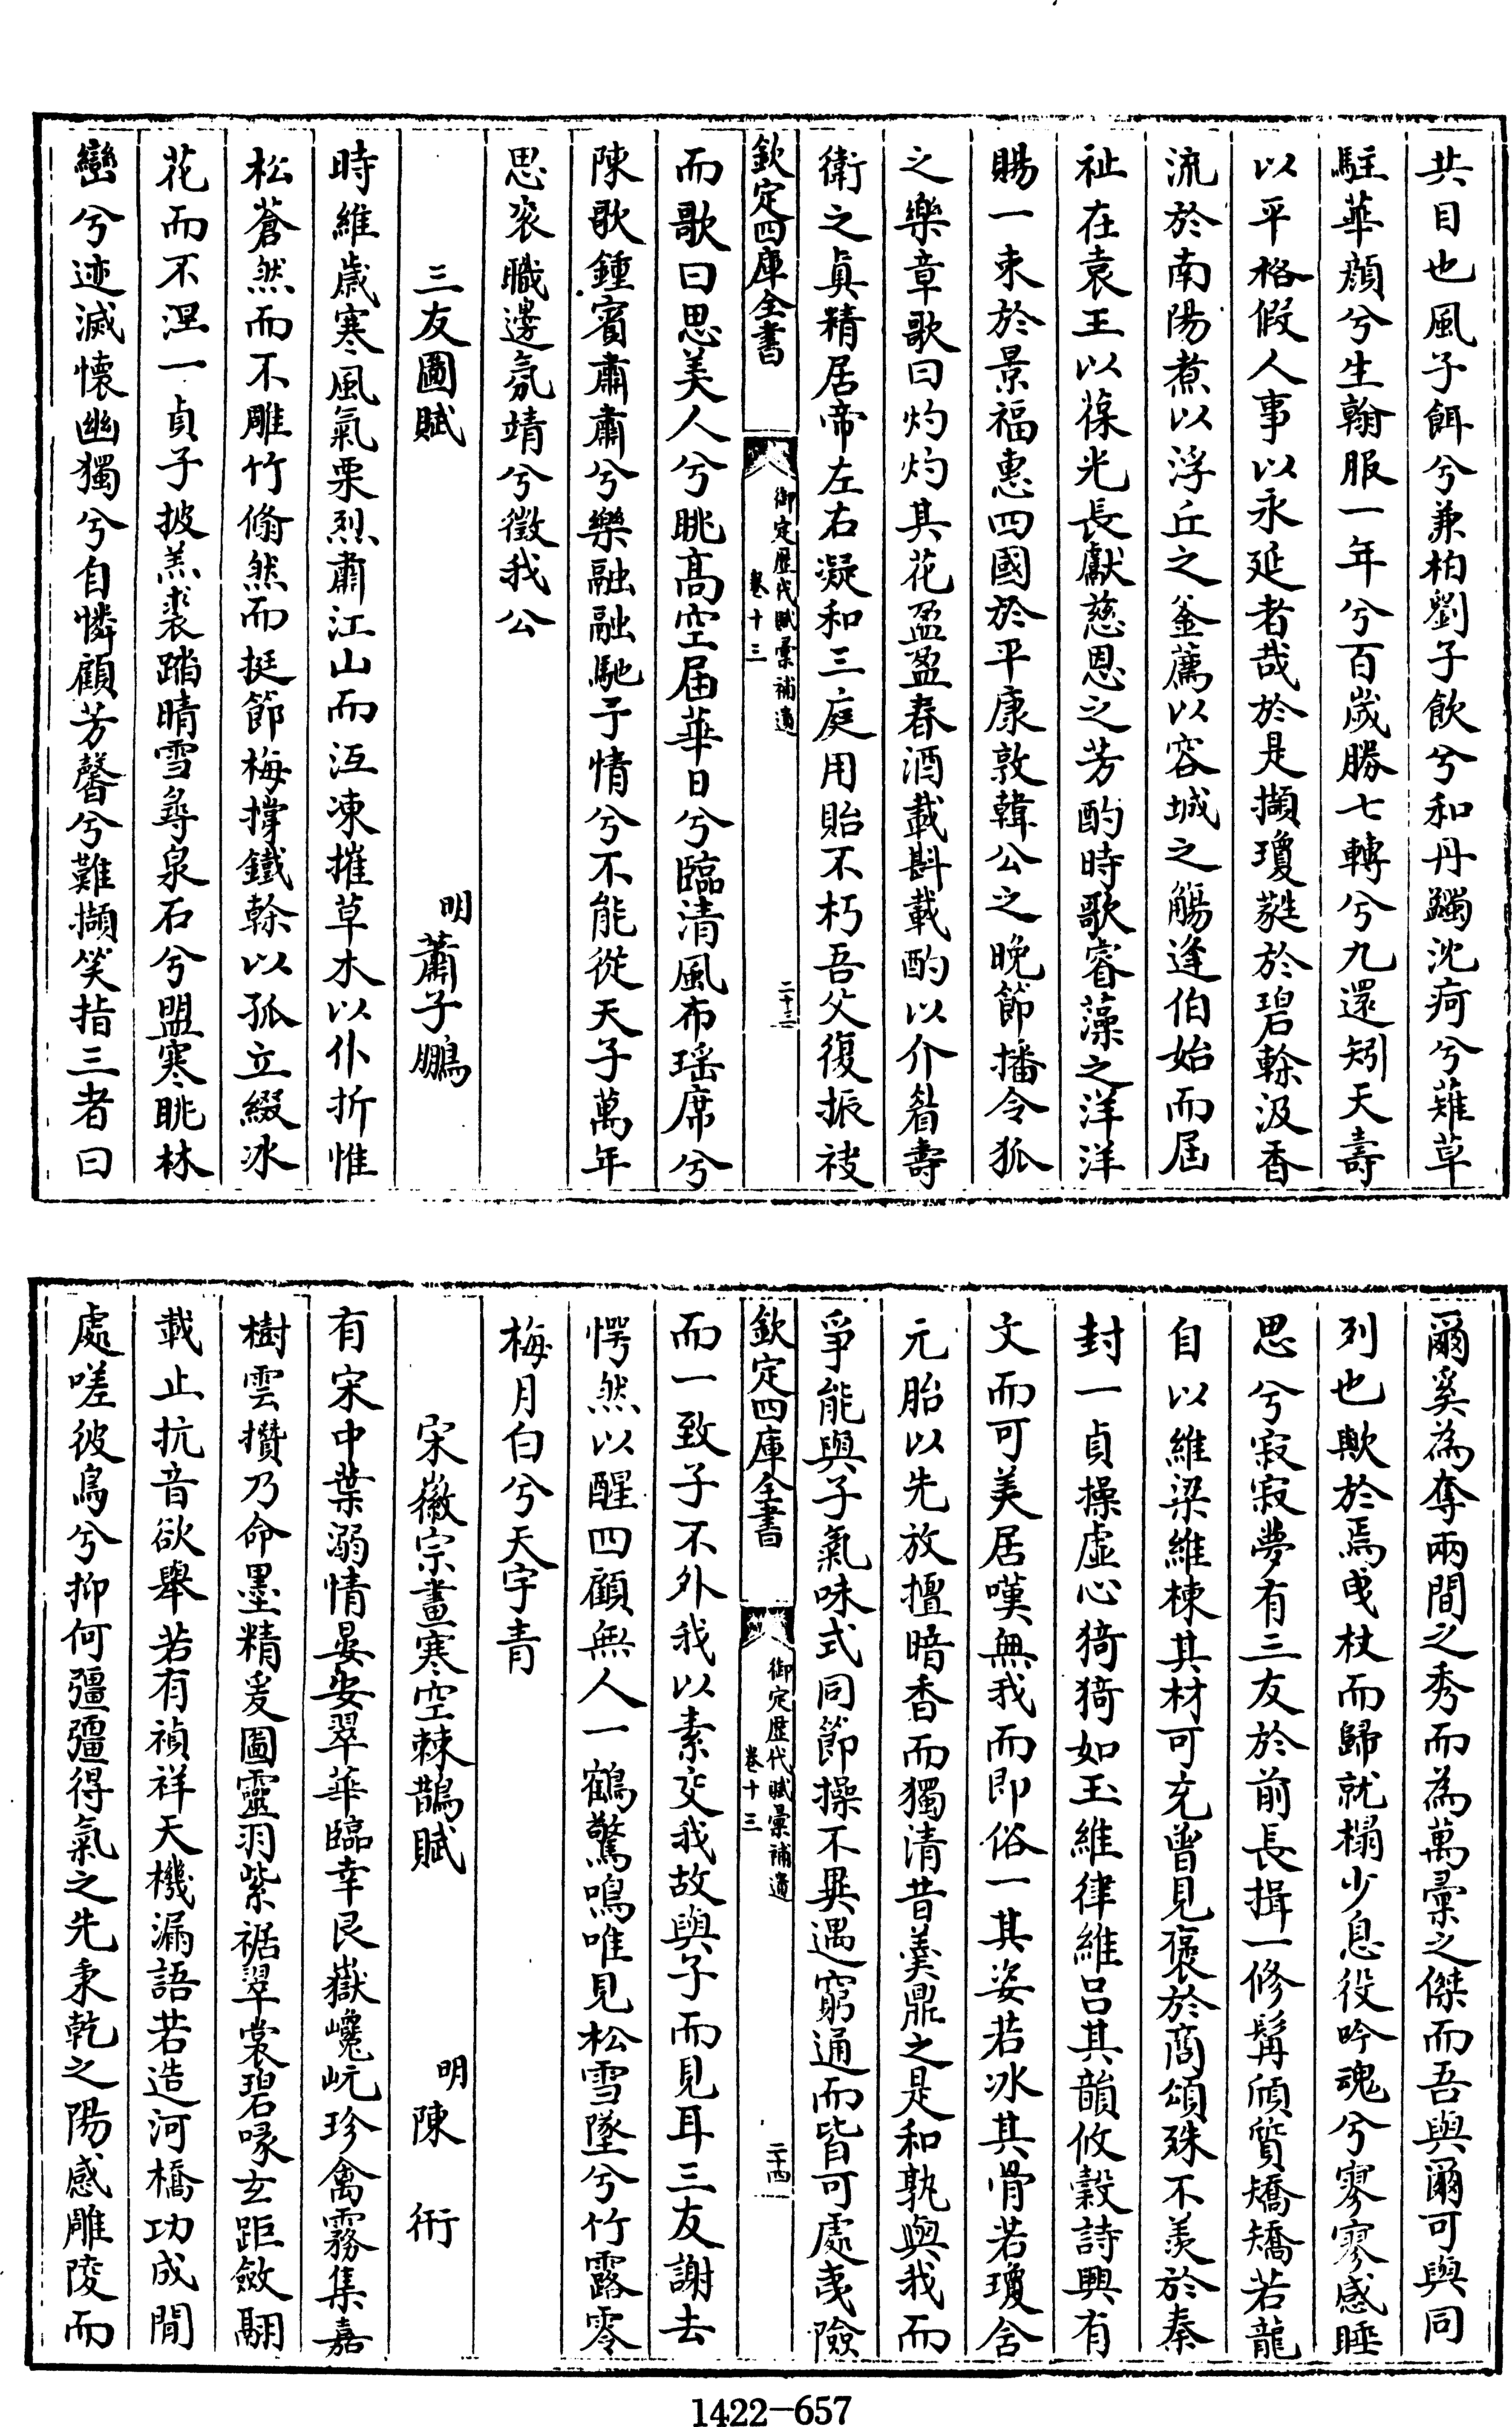 共目也風子餌兮兼柏劉子飲兮和丹蠲沈疴兮薙草
駐華顔兮生翰服一年兮百歲勝七轉兮九還矧天壽
以平格假人事以永延者哉於是擷瓊蕤於碧榦汲香
流於南陽煮以浮丘之釜薦以容城之觴逢伯始而屆
祉在袁王以葆光長獻慈恩之芳酌時歌睿藻之洋洋
賜一束於景福惠四國於平康敦韓公之晚節播令狐
之樂章歌曰灼灼其花盈盈春酒載斟載酌以介眉壽
衛之真精居帝左右凝和三庭用貽不朽吾父復振袂
欽定四庫全書
御定歴代賦彚補遺
卷十三
二十三
而歌曰思美人兮眺高空届華日兮臨清風布瑤席兮
陳歌鍾賓肅肅兮樂融融馳予情兮不能從天子萬年
思衮職邊氛靖兮徵我公
三友圖賦
明蕭子鵬
時維歲寒風氣栗烈肅江山而沍凍摧草木以仆折惟
松蒼然而不雕竹翛然而挺節梅撐鐵榦以孤立綴冰
花而不涅一貞子披羔裘踏晴雪尋泉石兮盟寒眺林
巒兮迹滅懷幽獨兮自憐顧芳馨兮難擷笑指三者曰
爾奚為奪兩間之秀而為萬彚之傑而吾與爾可與同
列也歟於焉曳杖而歸就榻少息役吟魂兮寥寥感睡
思兮寂寂夢有三友於前長揖一修髯頎質矯矯若龍
自以維梁維棟其材可充曾見褒於商頌殊不羨於秦
封一貞操虛心猗猗如玉維律維呂其韻攸穀詩興有
文而可美居嘆無我而即俗一其姿若冰其骨若瓊含
元胎以先放擅暗香而獨清昔羹鼎之是和孰與我而
爭能與子氣味式同節操不異遇窮通而皆可處夷險
欽定四庫全書
御定歴代賦彚補遺
卷十三
二十四
而一致子不外我以素交我故與子而見耳三友謝去
愕然以醒四顧無人一鶴驚鳴唯見松雪墜兮竹露零
梅月白兮天宇青
宋徽宗畫寒空棘鵲賦
明陳衎
有宋中葉溺情晏安翠華臨幸艮嶽巉岏珍禽霧集嘉
樹雲攢乃命墨精爰圖靈羽紫裾翠裳碧喙玄距斂翮
載止抗音欲舉若有禎祥天機漏語若造河橋功成閒
處嗟彼鳥兮抑何彊彊得氣之先秉乾之陽感雕陵而
1422-657